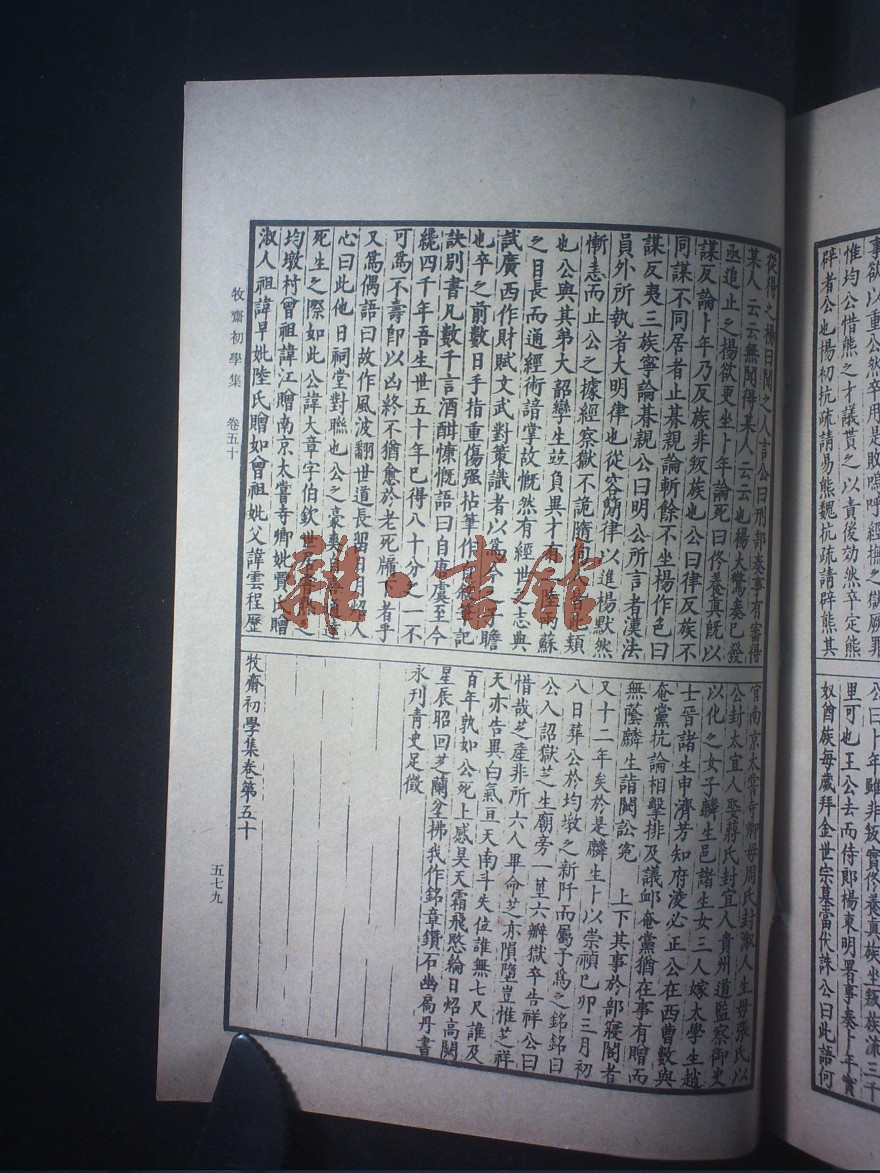 事欲以重公然卒用是敗嗚呼經撫之獄厥罪
惟均公惜熊之才議貰之以責後効然卒定熊
辟者公也楊初抗疏請勿熊魏抗疏請辟熊其
公曰卜年雖非叛實佟養真族坐叛族流三千
里可也王公去而侍郎楊東明署事奏卜年實
奴酋族每歲拜金世宗墓當伏誅公曰此語何
從得之楊曰聞之人言公曰刑部奏事有審得
某人云云無聞得某人云云也楊大驚奏已發
亟追止之楊欲更坐卜年論死曰佟養真既以
謀反論卜年乃反族非叛族也公曰律反族不
同謀不同居者止朞親論斬餘不坐楊作色曰
謀反夷三族寧論朞親公曰明公所言者漢法
員外所執者大明律也從容簡律以進楊默然
慚恚而止公之據經察獄不詭隨徇人皆此類
也公與其弟大韶孿生竝負異才有兩蘇
之目長而通經術諳掌故慨然有經世之志典
試廣西作財賦文武對策識者以爲今之子瞻
也卒之前數日手指重傷强拈筆作絶筆記
訣別書凡數千言酒酣慷慨語曰自唐虞至今
纔四千年吾生世五十年已得八十分之一不
可爲不壽卽以凶終不猶愈於老死牖下者乎
又爲偶語曰故作風波翻世道長留日月炤人
心曰此他日祠堂對聯也公之豪爽
死生之際如此公諱大章字伯欽世
均墩村曾祖諱江贈南京太嘗寺卿妣賈氏贈
淑人祖諱早妣陸氏贈如曾祖妣父諱雲程歷
官南京太嘗寺卿母周氏封淑人生母張氏以
公封太宜人娶蔣氏封宜人貴州道監察御史
以化之女子麟生邑諸生女三人嫁太學生趙
士晉諸生申濟芳知府凌必正公在西曹數與
奄黨抗論相擊排及議卹奄黨猶在事有贈而
無蔭麟生詣闕訟寃　上下其事於部寢閣者
又十二年矣於是麟生卜以崇禎己卯三月初
八日葬公於均墩之新阡而屬予爲之銘銘曰
公入詔獄芝生廟旁一莖六瓣獄卒告祥公曰
惜哉芝產非所六人畢命芝亦隕墮豈惟芝祥
天亦告異白氣亘天南斗失位誰無七尺誰及
百年孰如公死上感昊天霜飛愍綸日炤高闕
星辰昭回芝蘭坌拂我作銘章鑽石幽扃丹書
永刊青史足徵
牧齋初學集卷第五十
牧齋初學集　卷五十
五七九
雜·書館